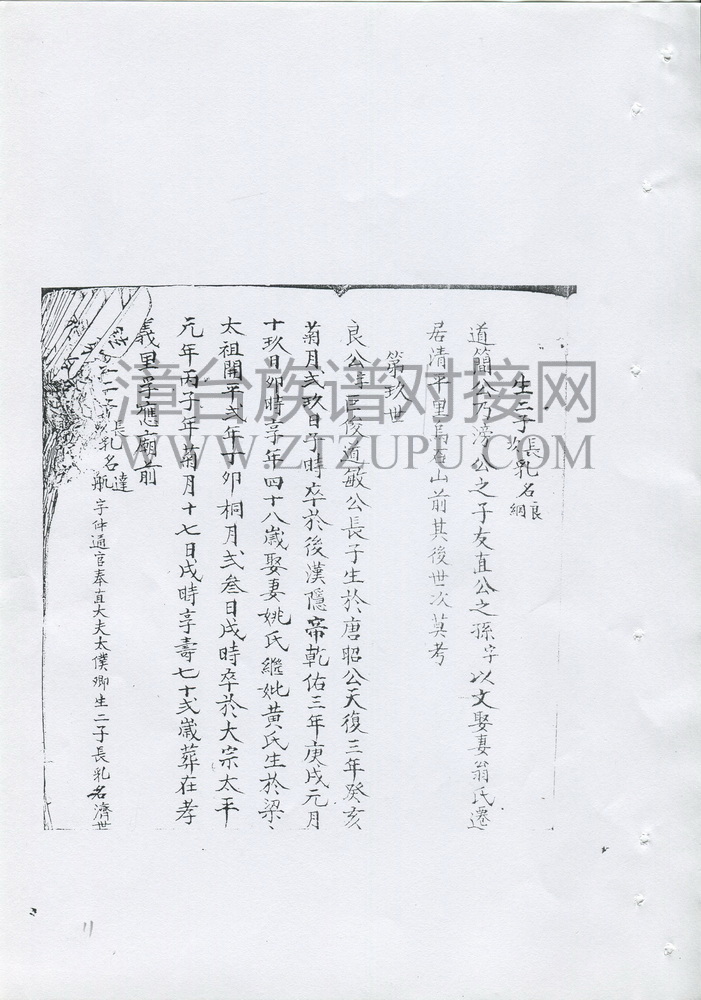 生二子長乳名良
次乳名綱
道簡公乃滂公之子友直公之孫字以文娶妻翁氏遷
居清平里馬石山前其後世次莫考
第玖世
良公字臣俊道敏公長子生於唐昭公天復三年癸亥
菊月弍玖日子時卒於後漢隱帝乾佑三年庚戌元月
十玖日卯時享年四十八歲娶妻姚氏繼妣黃氏生於梁
太祖開平弍年丁卯桐月弍叁日戌時卒於大宗太平
元年丙子年菊月十七日戌時享壽七十弍歲葬在孝
義里孚應廟前
長乳名達
航字仲通官奉直大夫太僕卿生二子長乳名濟世
漳台族谱对接网
WWW.ZTZUPU.COM
11